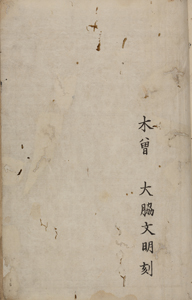 木曽 大脇文明刻